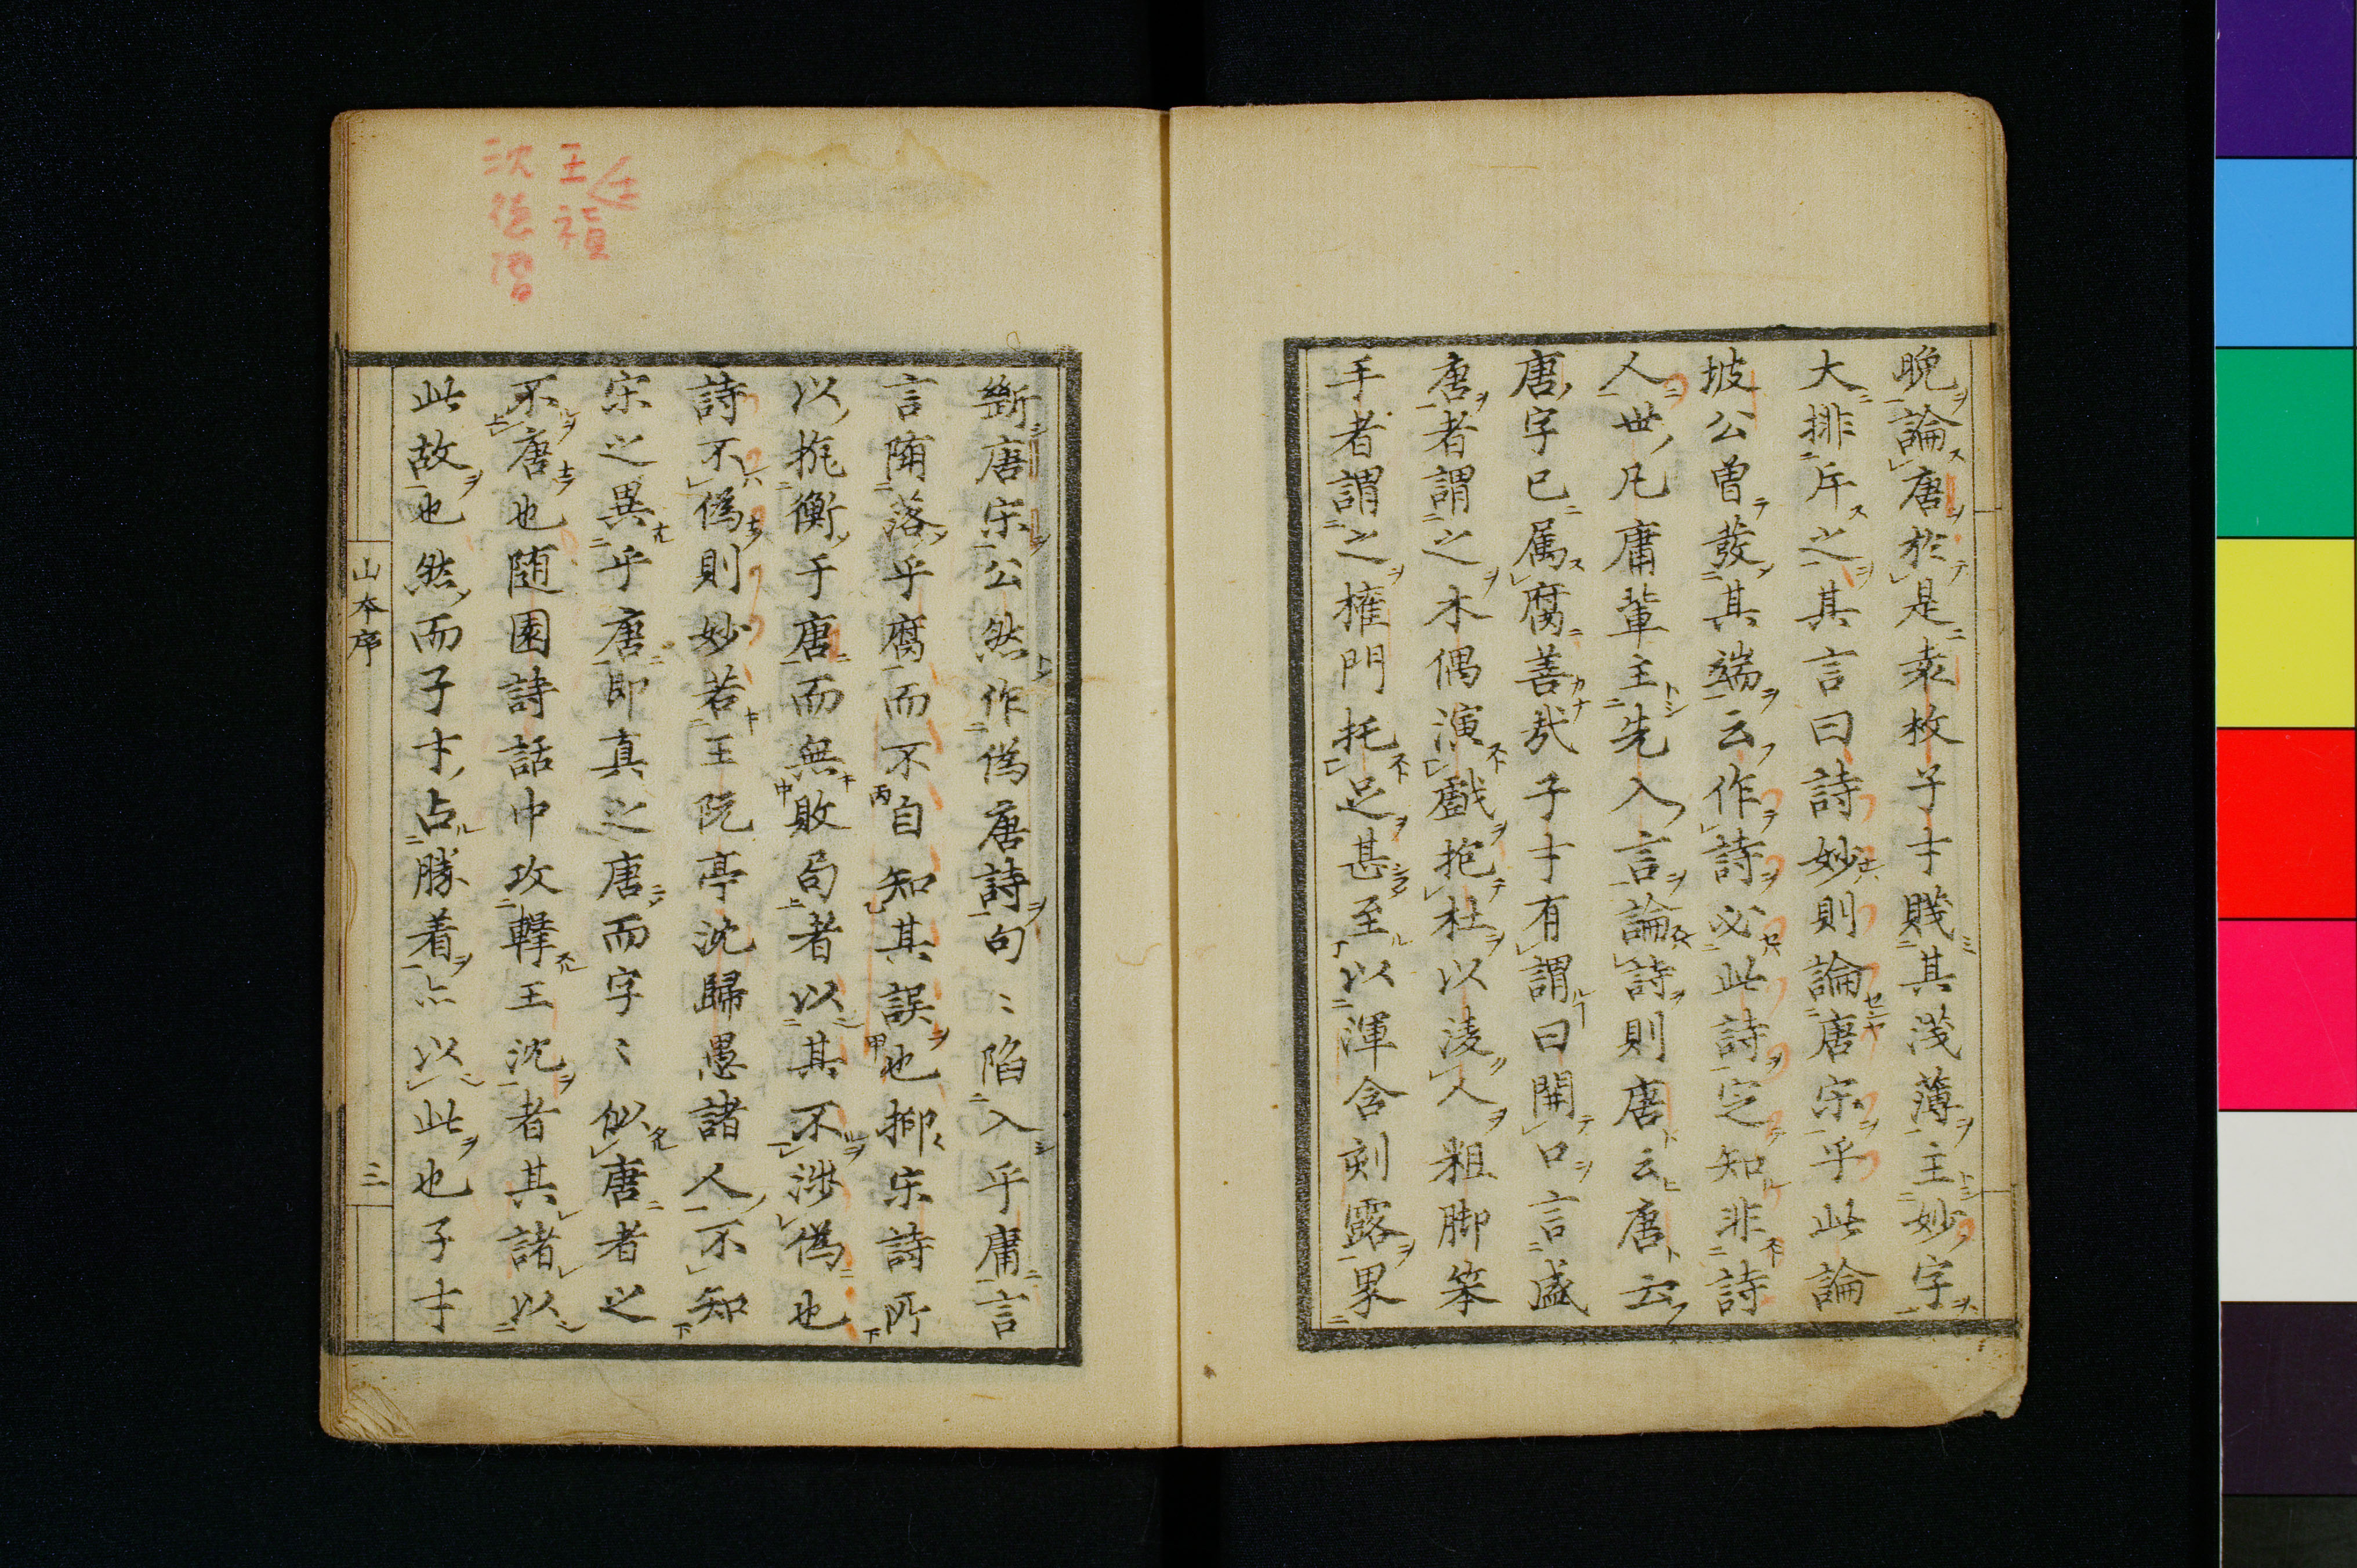 晩論唐於是袁枚子才賤其浅薄主妙字
大排斥之其言曰詩妙則論唐宋乎此論
坡公曽發其端云作詩必此詩定知非詩
人世凡庸輩主先入言論詩則唐云唐云
唐字已属腐善哉子才有謂曰開口言盛
唐者謂之木偶演戯抱杜以凌人粗脚笨
手者謂之権門托足甚至以渾含刻露界
斷唐宋公然作偽唐詩句〻陥入乎庸言
言陏落乎腐而不自知其誤也抑宋詩所
以抗衡于唐而無敢易者以其不渉偽也
詩不偽則妙若王阮亭沈歸愚諸人不知
宋之異乎唐即真之唐而字〻似唐者之
不唐也随園詩話中攻擊王沈者其諸以
此故也然而子才占勝着亦以此也子才
山本序
三
王廷禎
沈徳潜